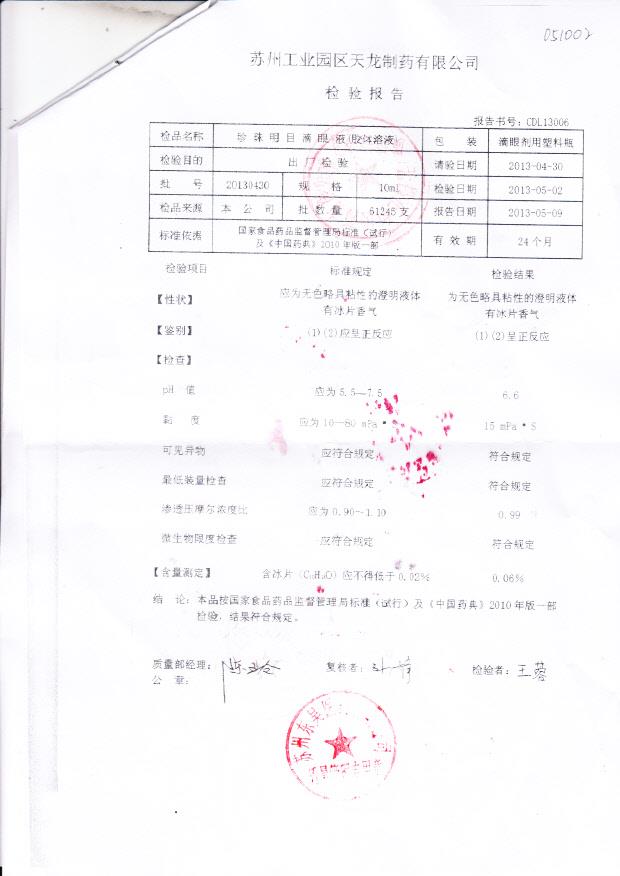 051002
苏州工业园区天龙制药有限公司
检验报告
报告书号：CDL13006
检品名称 珍珠明目滴眼液(胶体溶液) 包装 滴眼剂用塑料瓶
检验目的 出厂检验 请验日期 2013-04-30
批号 20130430 规格 10ml 检验日期 2013-05-02
检品来源 本公司 批数量 61245支 报告日期 2013-05-09
标准依据 国家食品药品监督管理局标准（试行）
及《中国药典》2010年版一部 有效期 24个月
检验项目 标准规定 检验结果
【性状】 应为无色略具粘性的澄明液体 为无色略具粘性的澄明液体
有冰片香气 有冰片香气
【鉴别】 (1)(2)应呈正反应 (1)(2)呈正反应
【检查】
pH 值 应为5.5—7.5 6.6
黏度 应为10—80 mPa• 15 mPa•S
可见异物 应符合规定 符合规定
最低装量检查 应符合规定 符合规定
渗透压摩尔浓度比 应为0.90~1.10 0.99
微生物限度检查 应符合规定 符合规定
【含量测定】 含冰片（C₁₀H₁₈O）应不得低于0.02% 0.06%
结论：本品按国家食品药品监督管理局标准（试行）及《中国药典》2010年版一部
检验，结果符合规定。
质量部经理： 复核者： 检验者：王蓉
公章：
苏州东吴